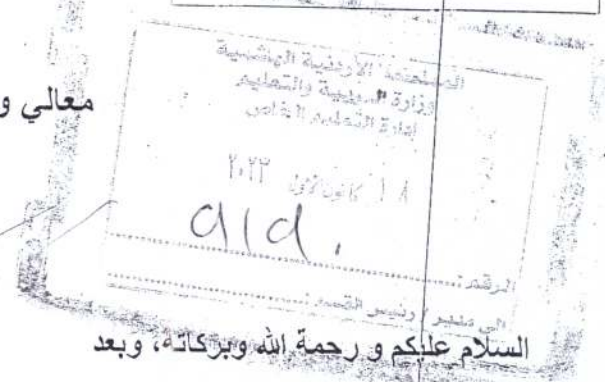 المملكة الأردنية الهاشمية
وزارة التربية والتعليم
إدارة التعليم الخاص
معالي و
١٨ كانون الأول ٢٠٢٣
الرقم:
الى مدير / رئيس القسم
السلام عليكم و رحمة الله وبركاته، وبعد